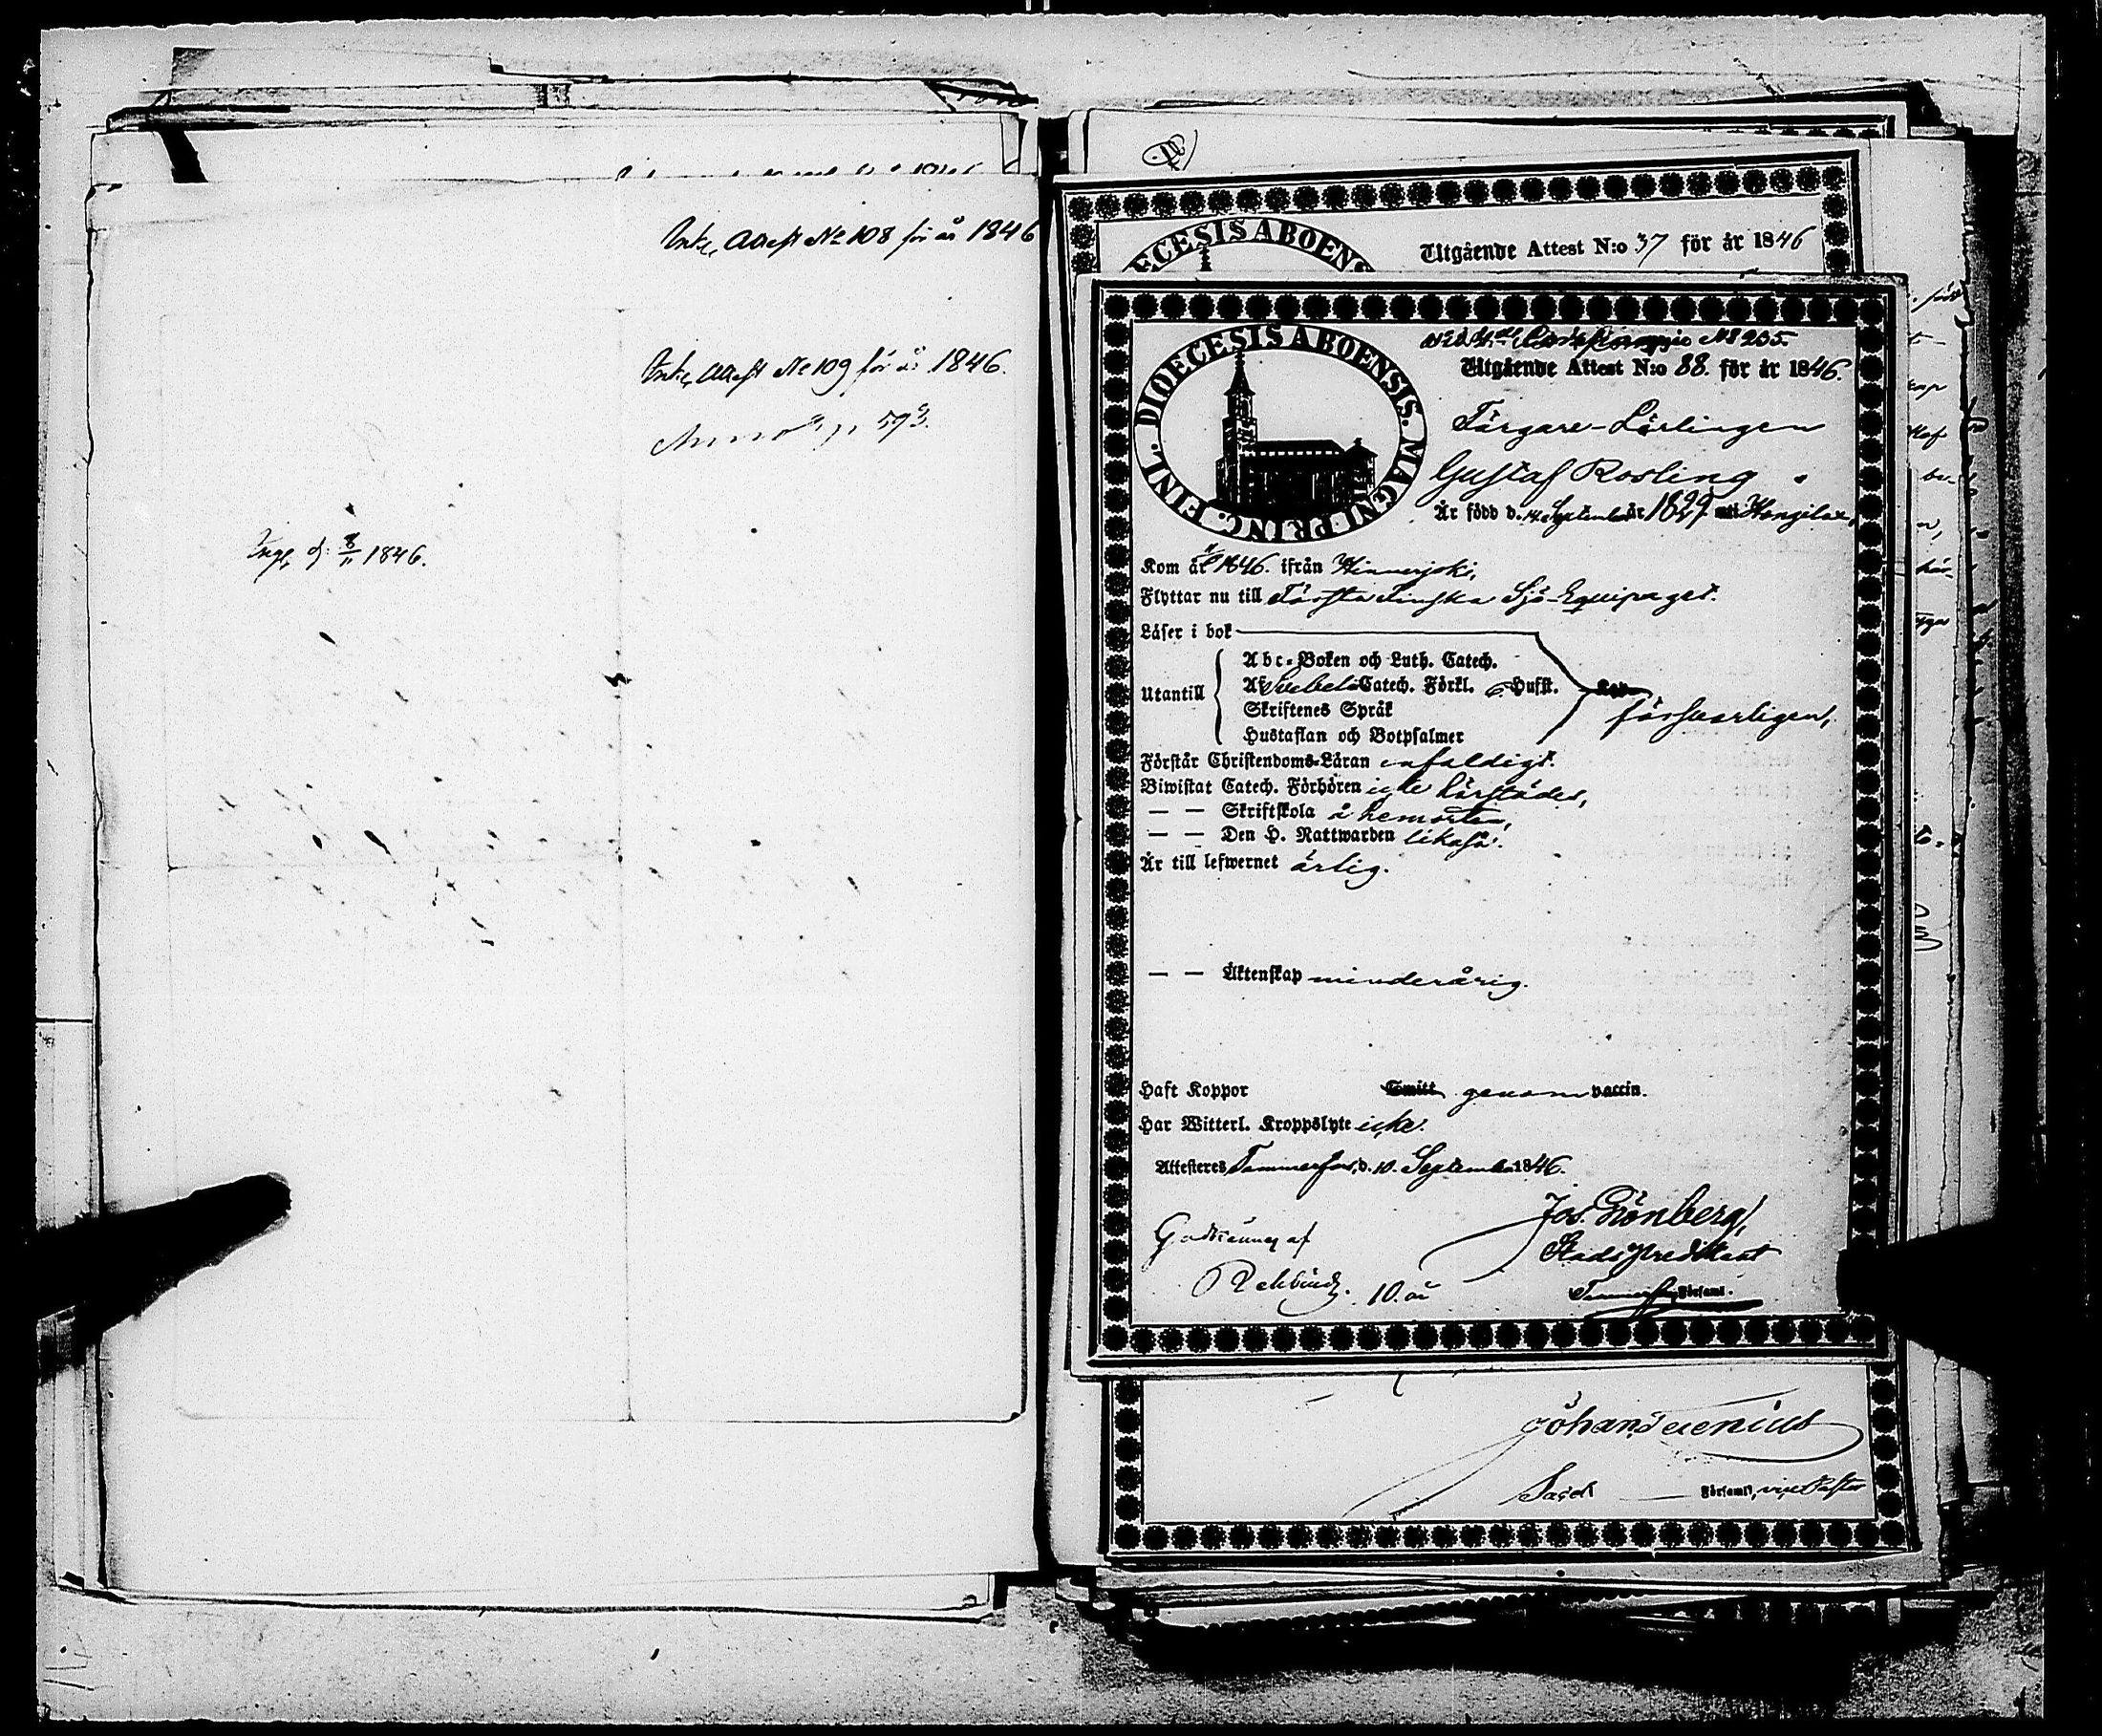 Ink. Attest No 108 för år 1846
Ink. Attest No 109 för år 1846.
593.
Ingl. d. 8/11 1846.
DIOECESIS ABOENSIS
Utgående Attest N:o 37 för år 1846
DIOECESIS ABOENSIS. MAGNI PRINC. FINL.
No 205.
Utgående Attest N:o 88. för år 1846.
Färgare-Lärlingen
Gustaf Rosling
Är född d. 14 September år 1829 i Kangslax,
Kom år 1846. ifrån Hinnerjoki,
Flyttar nu till Första Finska Sjö-Equipaget.
Läser i bok
Utantill
Abc-Boken och Luth. Catech.
Af Svebelii Catech. Förkl. 6 Hufst.
Skriftenes Språk
Hustaflan och Botpsalmer
försvarligen,
Förstår Christendoms-Läran enfaldigt.
Biwistat Catech. Förhören icke härstädes,
— — Skriftskola å hemorten,
— — Den H. Nattwarden likaså.
Är till lefwernet ärlig.
— — Äktenskap minderårig.
Haft Koppor Smitt genom vaccin.
Har Witterl. Kroppslyte icke.
Attesteres Tammerfors, d. 10. September 1846.
Jos. Grönberg,
Stads Predikant
Tammerfors Församl.
Godkännes af
Rehbinder. 10. år
Johan Tuenius
Församl, vice Pastor